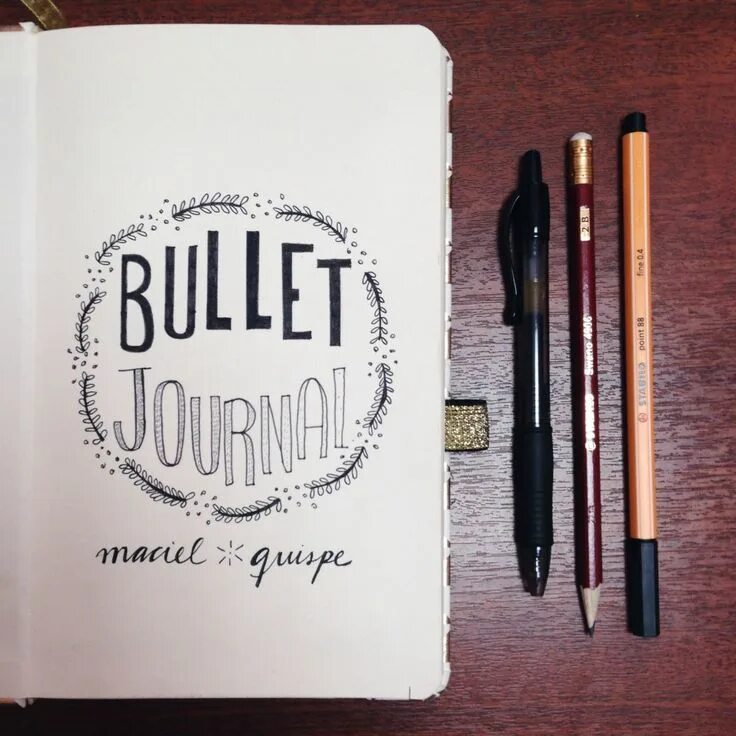 BULLET
JOURNAL
maciel quispe
2 B
Swano 4906
STABILO point 88 fine 0.4